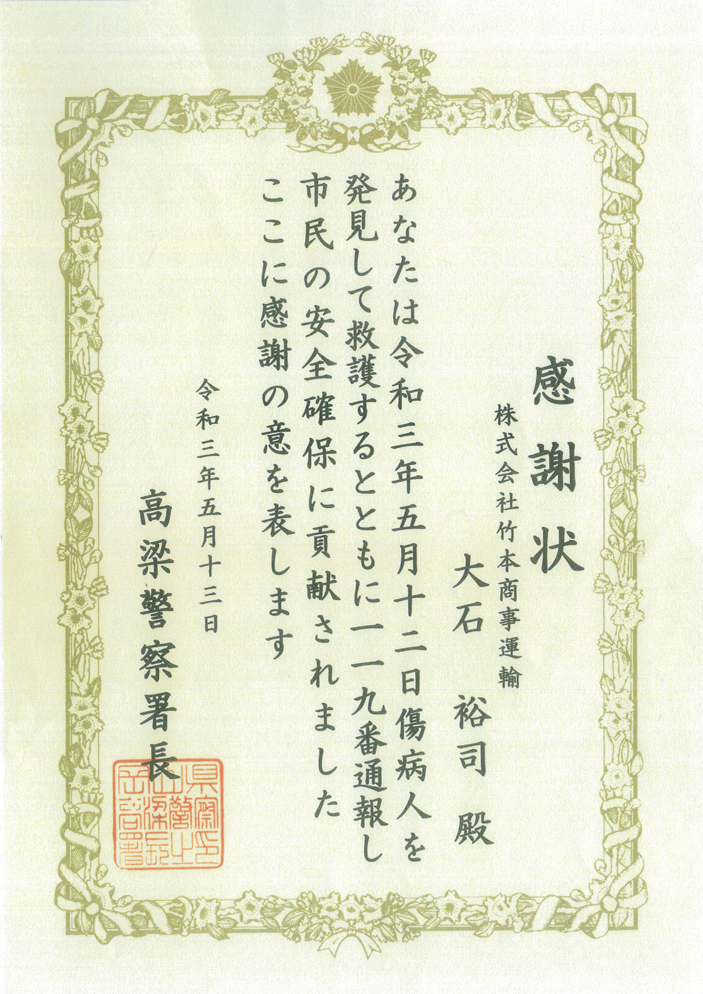 感謝状
株式会社竹本商事運輸
大石 裕司 殿
あなたは令和三年五月十二日傷病人を
発見して救護するとともに一一九番通報し
市民の安全確保に貢献されました
ここに感謝の意を表します
令和三年五月十三日
高梁警察署長